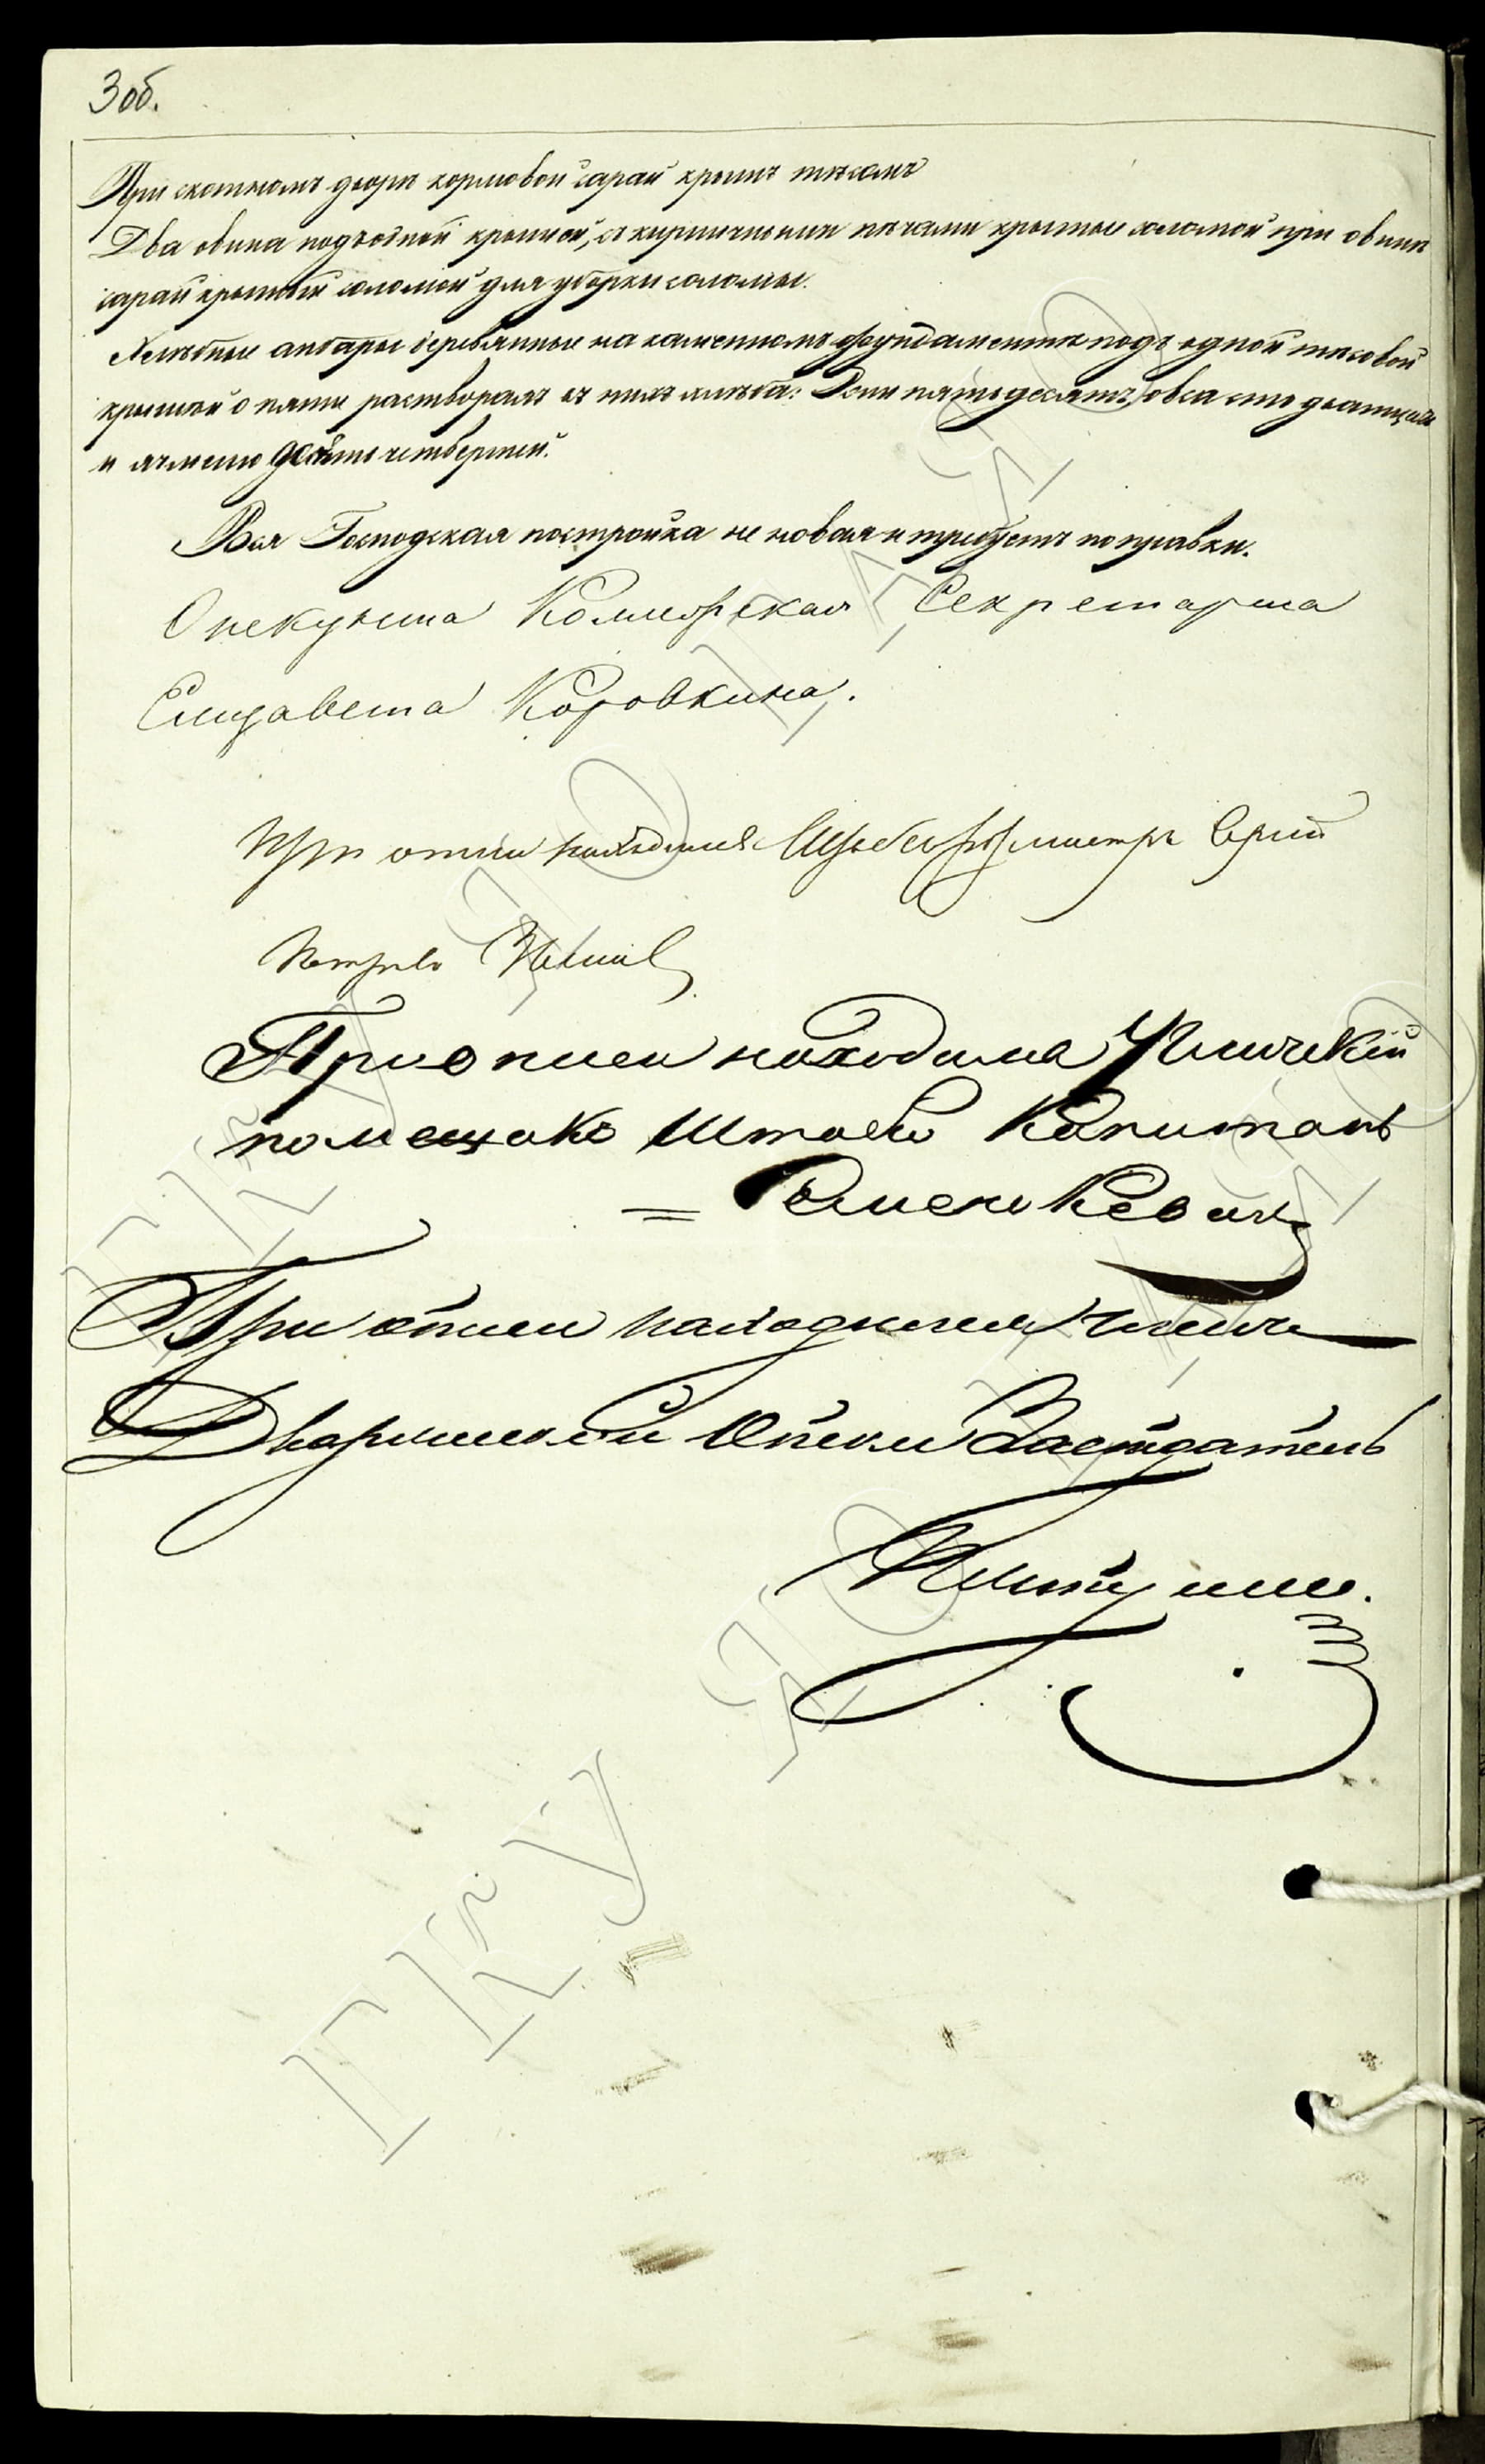 3 об.
При скотномъ дворѣ кормовой сарай крытъ тесомъ
Два овина под одной крышкой, съ кирпичными печами крытые соломой при овинѣ
сарай крытый соломой для уборки соломы.
Хлѣбные анбары деревянные на каменномъ фундаментѣ подъ одной тесовой
крышкой о пяти растворахъ въ нихъ хлѣба: Ржи пятьдесятъ, овса сто двадцать
и ячменю десять четвертей.
Вся Господская постройка не новая и требуетъ поправки.
Опекунша Коллежская Секретарша
Елизавета Коровкина.
При описи находился
Петровъ
При описи находился Угличскій
помещикъ Штабсъ Капитанъ
При описи находился Углич
Дворянской Опеки Заседатель
ГКУ ЯО ГАЯО
ГКУ ЯО ГАЯО